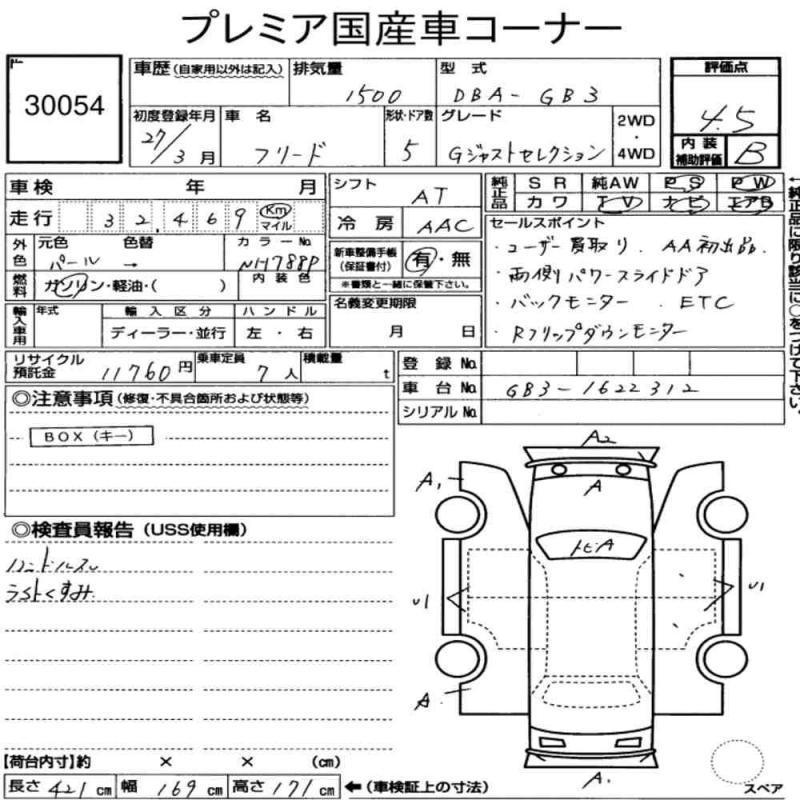 プレミア国産車コーナー
30054
車歴(自家用以外は記入)
排気量
1500
型式
DBA-GB3
評価点
4.5
内装補助評価
B
初度登録年月
27/3月
車名
フリード
形状・ドア数
5
グレード
Gジャストセレクション
2WD・4WD
車検 年 月
シフト
AT
純正品
SR 純AW PS PW
カワ TV ナビ エアB
走行 32,469 Km マイル
冷房
AAC
セールスポイント
・ユーザー買取り. AA初出品.
・両側パワースライドドア
・バックモニター. ETC
・Rフリップダウンモニター
←純正品に限り該当に○をつけて下さい。
外色
元色 色替
パール →
カラーNo.
NH788P
内装色
新車整備手帳(保証書付)
有・無
※書類と一緒に保管下さい。
燃料
ガソリン・軽油・( )
名義変更期限
月 日
輸入車用
年式
輸入区分
ディーラー・並行
ハンドル
左・右
リサイクル預託金
11760円
乗車定員
7人
積載量
t
登録No.
車台No.
GB3-1622312
シリアルNo.
◎注意事項(修復・不具合箇所および状態等)
BOX(キー)
◎検査員報告(USS使用欄)
ラストくすみ
A2
A
A
トビA
U1
U1
A
A
スペア
【荷台内寸】約 × × (cm)
長さ 421 cm 幅 169 cm 高さ 171 cm ←(車検証上の寸法)